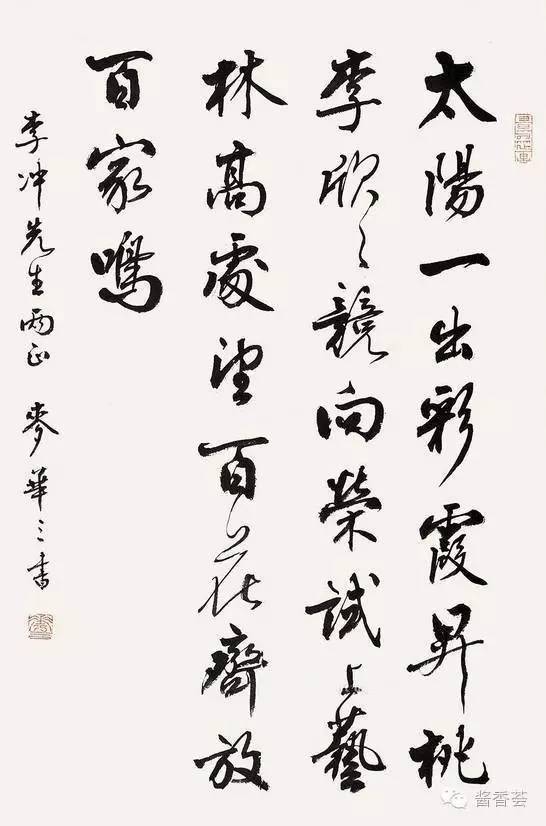 太陽一出彩霞昇桃
李欣〻競向榮試上藝
林高處望百花齊放
百家鳴
李冲先生兩正 麥華三書
酱香荟